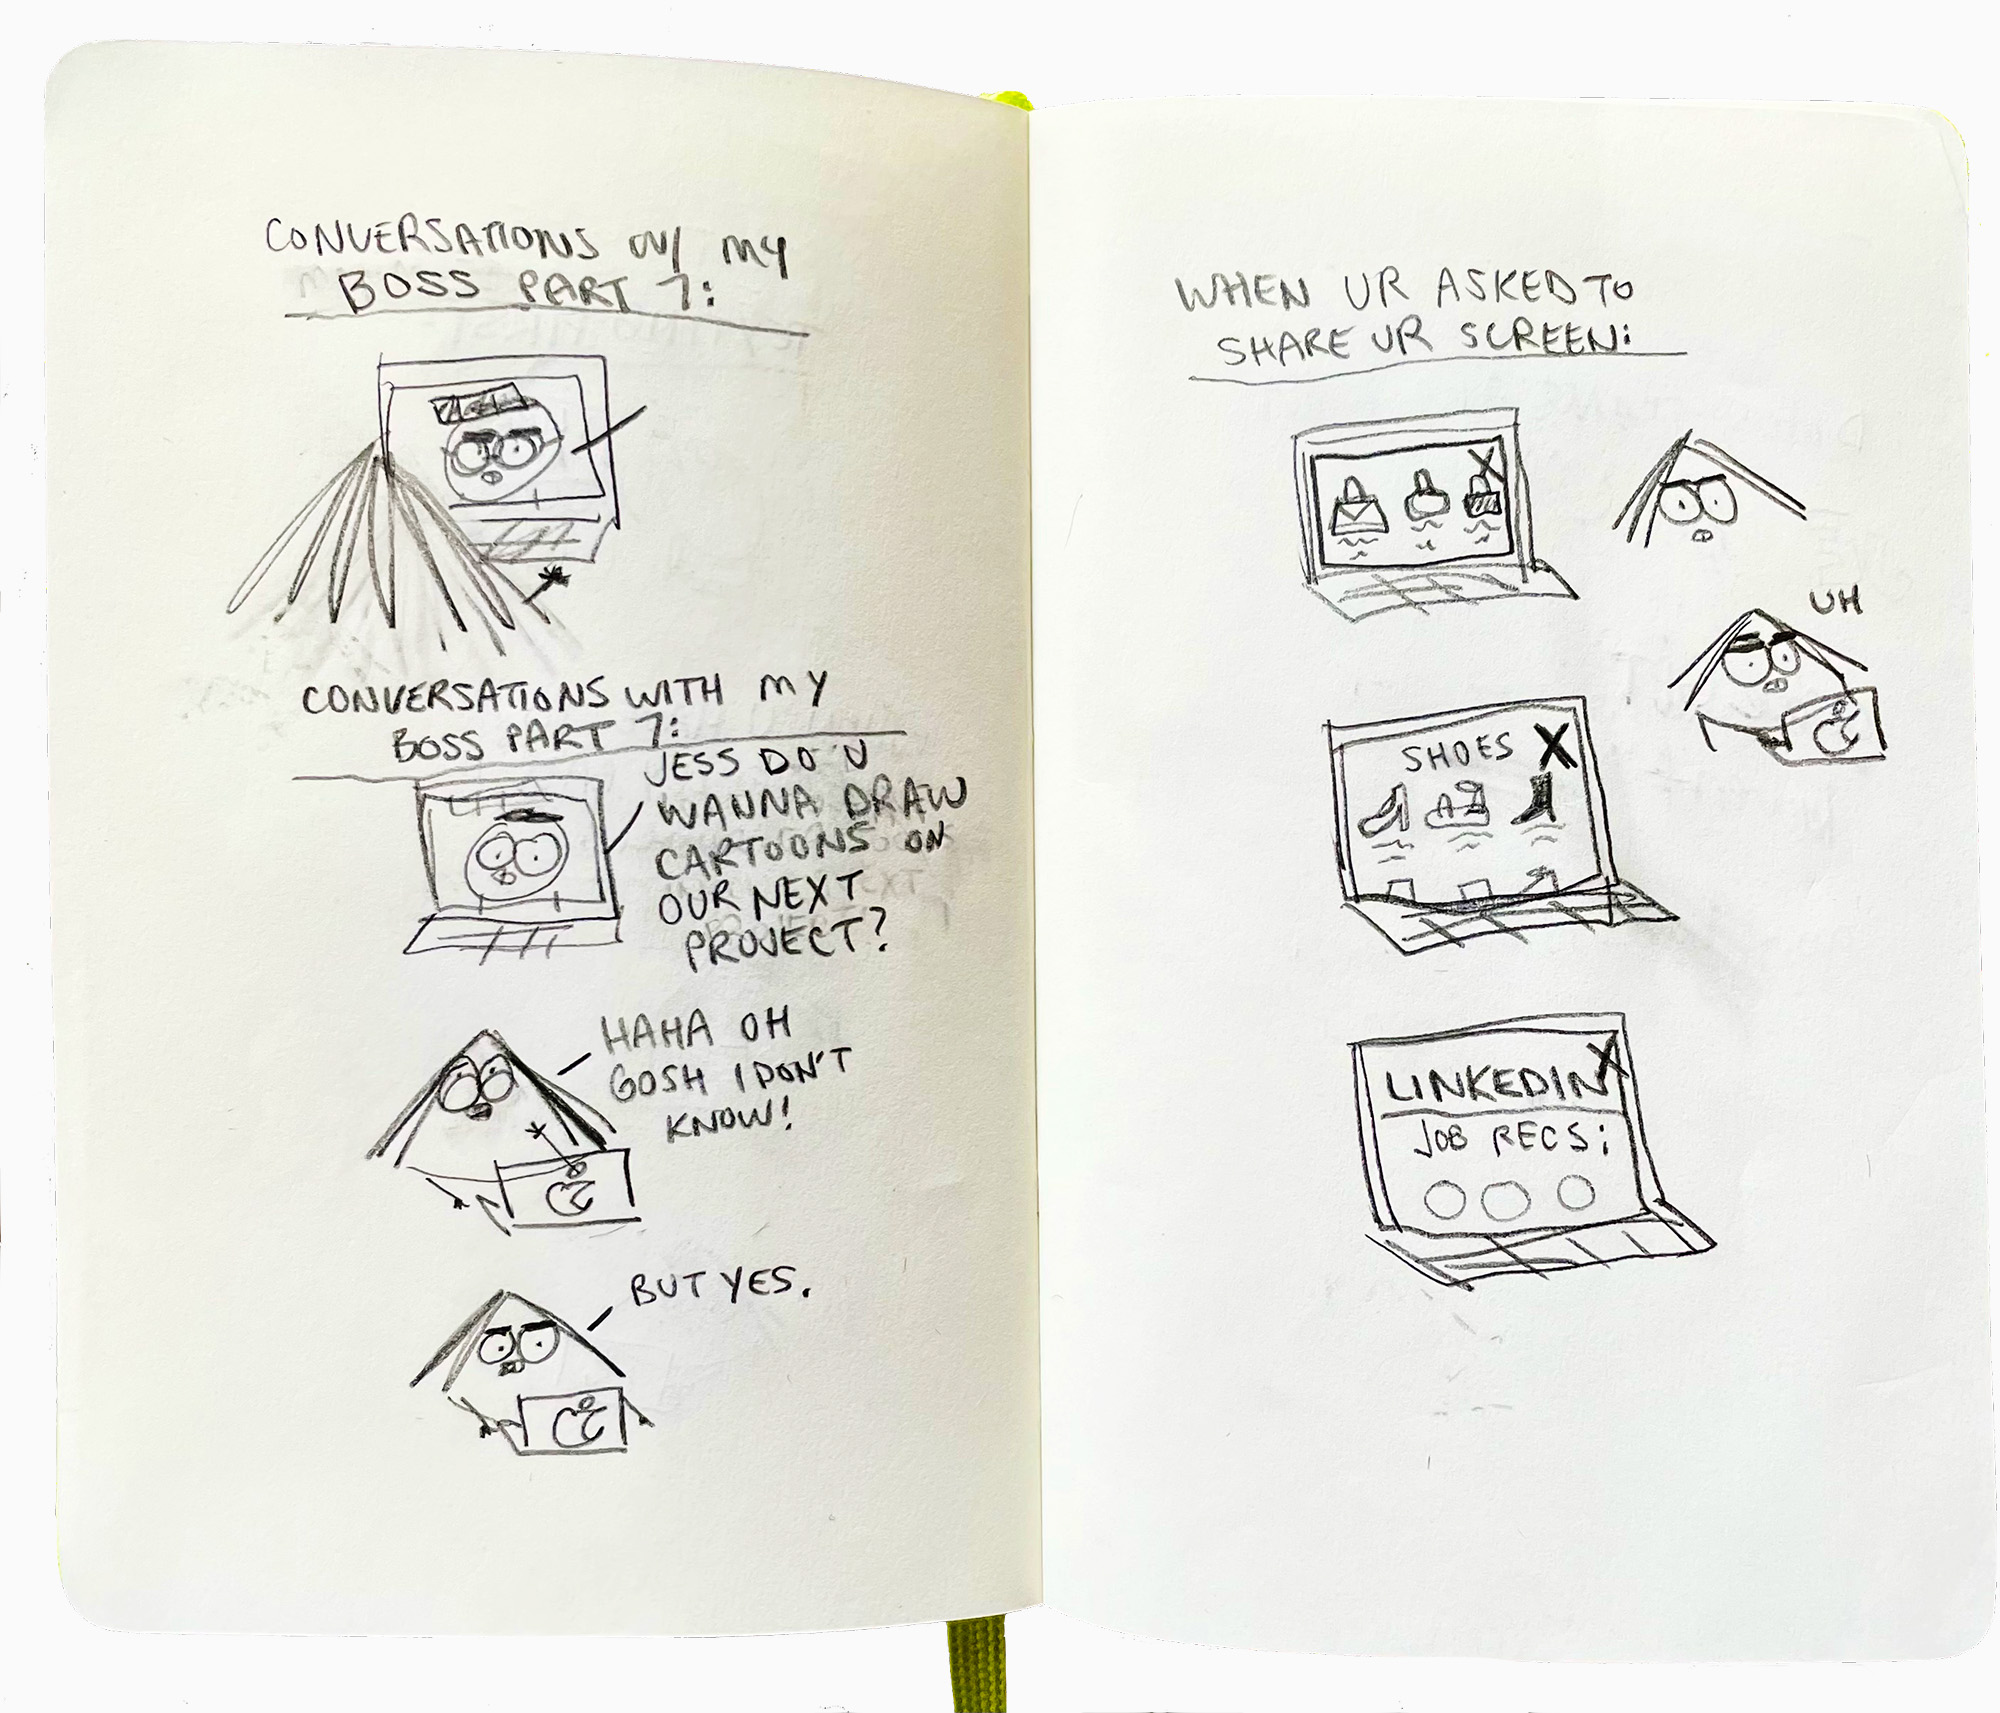 CONVERSATIONS W/ MY
BOSS PART 7:
CONVERSATIONS WITH MY
BOSS PART 7:
JESS DO U
WANNA DRAW
CARTOONS ON
OUR NEXT
PROJECT?
HAHA OH
GOSH I DON'T
KNOW!
BUT YES.
WHEN UR ASKED TO
SHARE UR SCREEN:
X
UH
SHOES X
LINKEDIN X
JOB RECS: